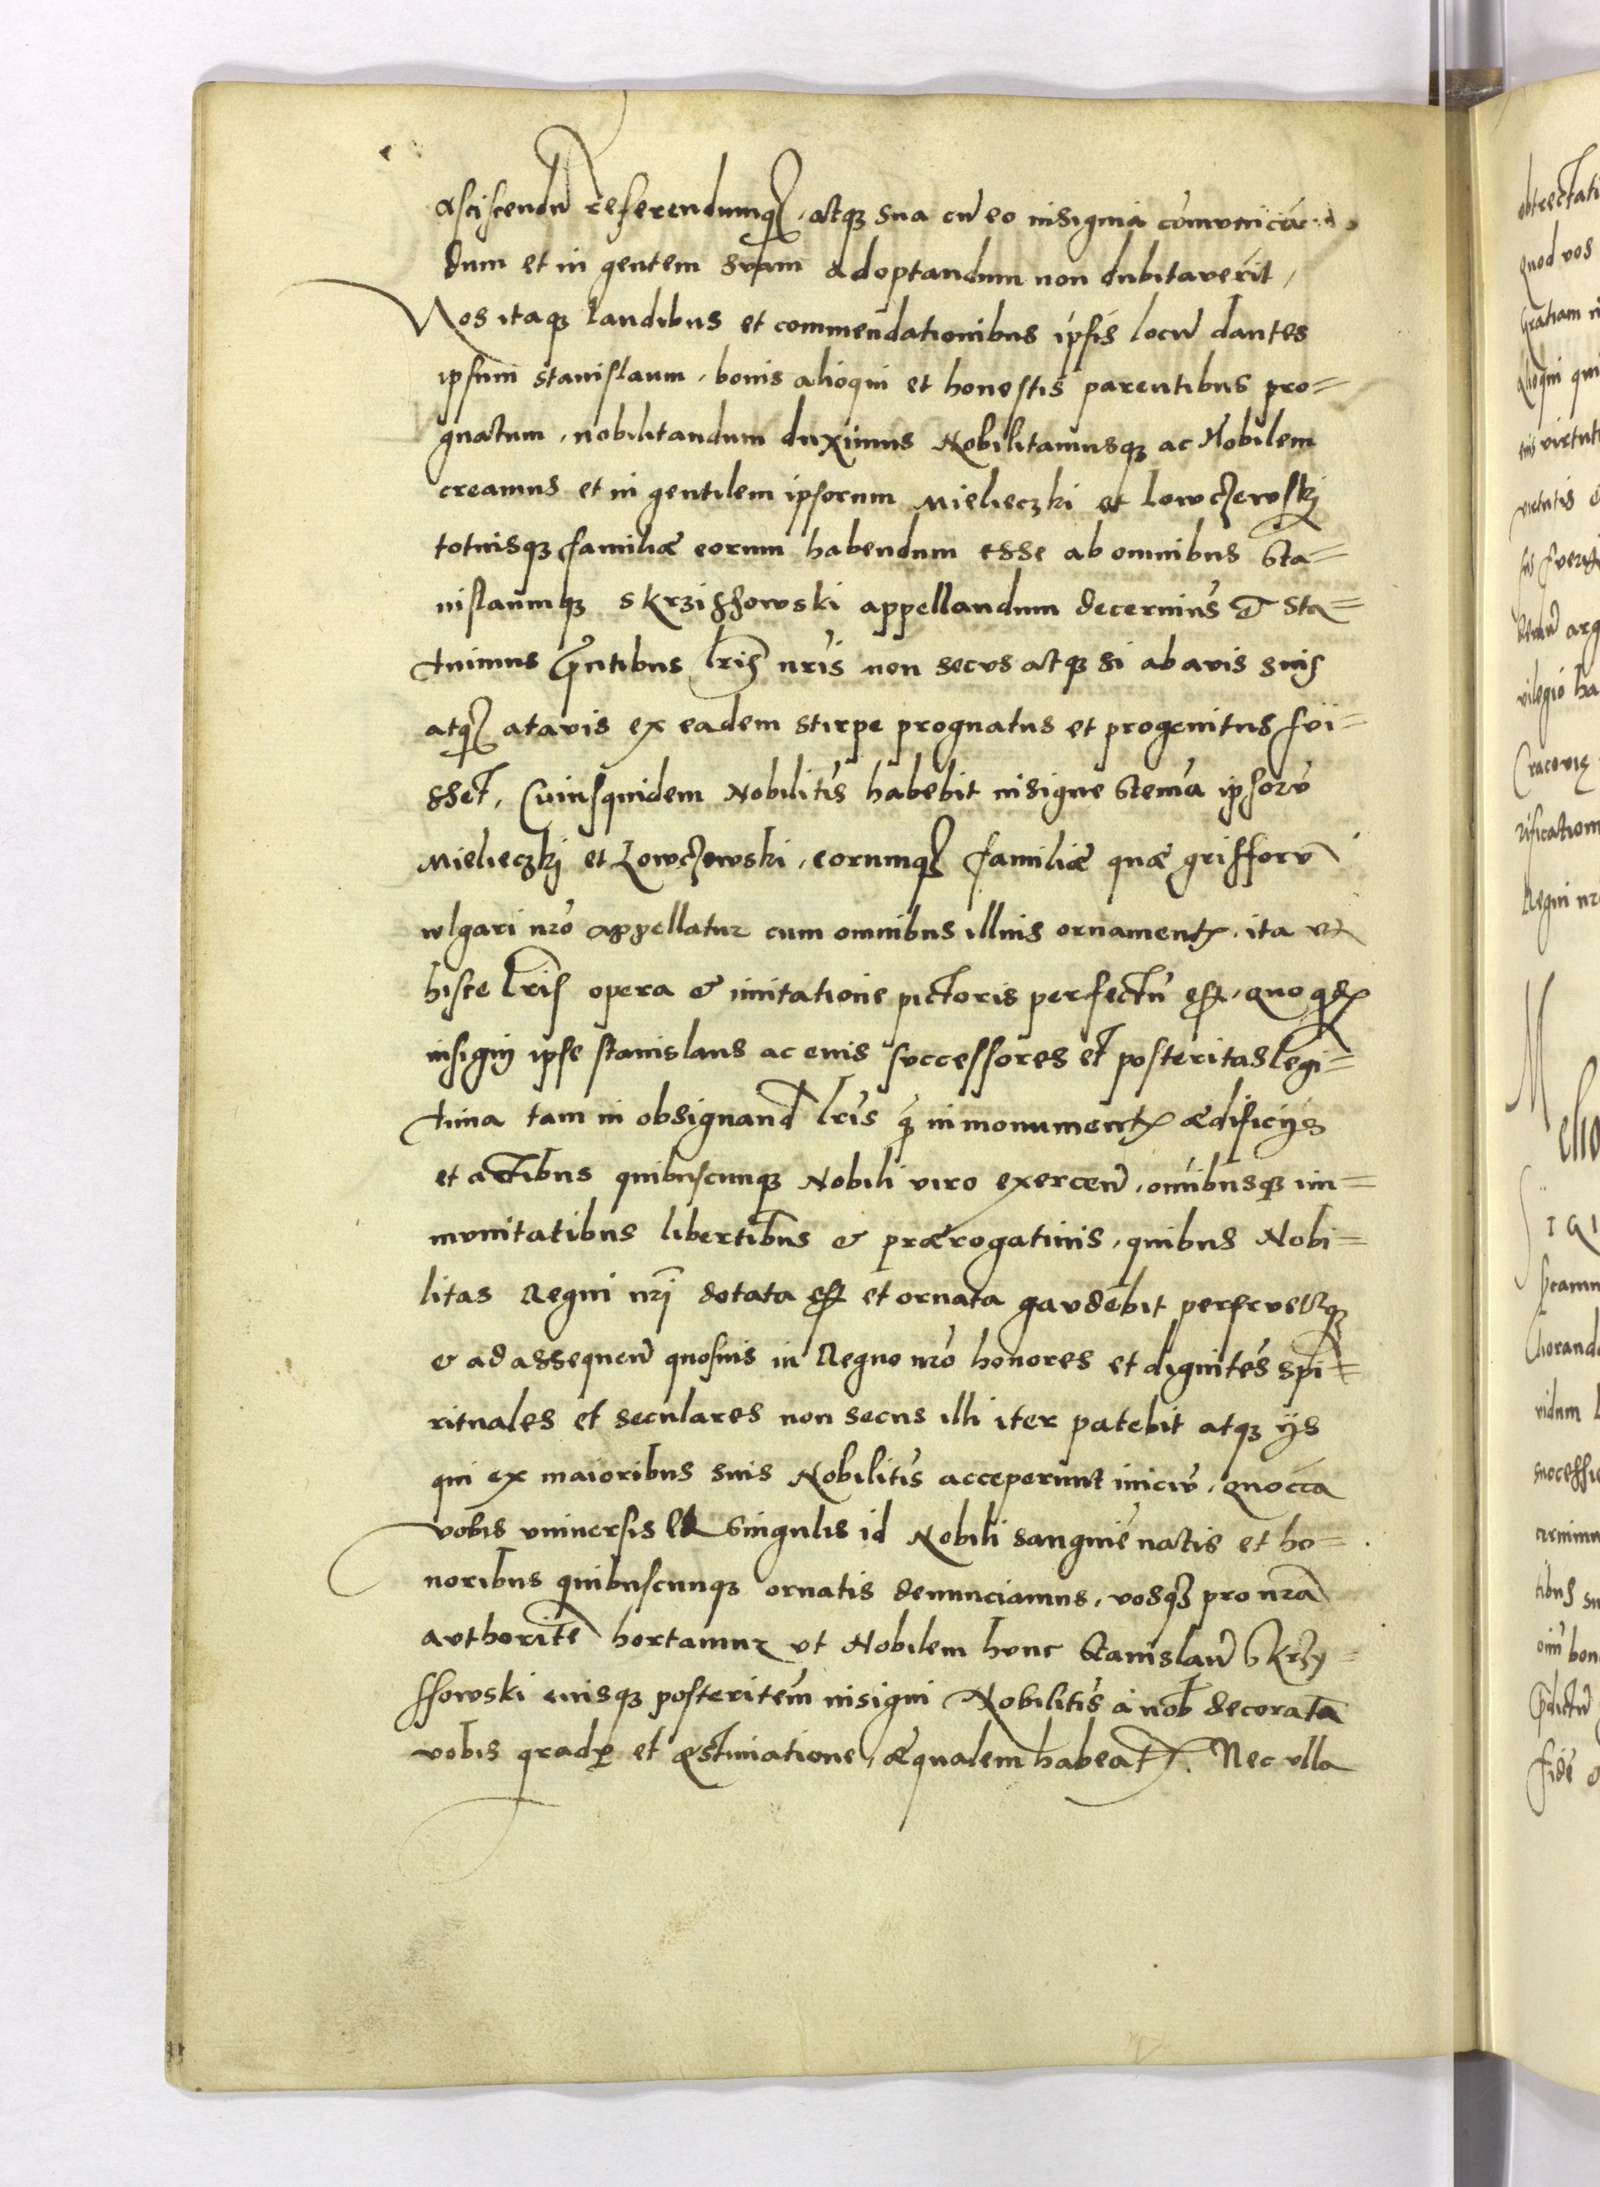 asciscendū referendumq₃, atq₃ sua cū eo insignia cōmunican
dum et in gentem suam adoptandum non dubitauerit,
Nos itaq₃ laudibus et commendationibus ipsis locū dantes
ipsum Stanislaum, bonis alioqui et honestis parentibus pro=
gnatum, nobilitandum duximus Nobilitamusq₃ ac Nobilem
creamus et in gentilem ipsorum Mieleczki et Lowczewskj
totiusq₃ familiæ eorum habendum esse ab omnibus Sta=
nislaumq₃ Skrzissowski appellandum decernimꝰ & Sta=
tuimus p̄ntibus lris nris non secus atq₃ si ab auis suis
atq₃ atauis ex eadem stirpe prognatus et progenitus fui=
sset, Cuiusquidem Nobilitis habebit insigne Stema ipsorū
Mieleczkj et Lowczewski, eorumq₃ familiæ quæ grifforū
wlgari nro appellatur cum omnibus illius ornament, ita vt
hisce lris opera & imitatione pictoris perfectū est, quo qdē
insigni ipse Stanislaus ac eius successores et posteritas legi=
tima tam in obsignand lris q̄ in monument ædificijs
et actibus quibuscunq₃ Nobili viro exercen̄, omībusq₃ im=
munitatibus libertibus & prærogatiuis, quibus Nobi=
litas Regni nri dotata est et ornata gaudebit perfruetq₃
& ad assequen̄ quosuis in Regno nro honores et dignites spi=
rituales et seculares non secus illi iter patebit atq₃ ijs
qui ex maioribus suis Nobilitis acceperunt iniciū, Quocca
vobis vniuersis et Singulis id Nobili sanguīe natis et ho=
noribus quibuscunq₃ ornatis denunciamus, vosq₃ pro nra
authorite hortamur vt Nobilem hunc Stanislaū Skrzy=
ssowski eiusq₃ posteritem insigni Nobilitis a nob decorata
vobis gradu et æstimatione, æqualem habeat. Nec vlla